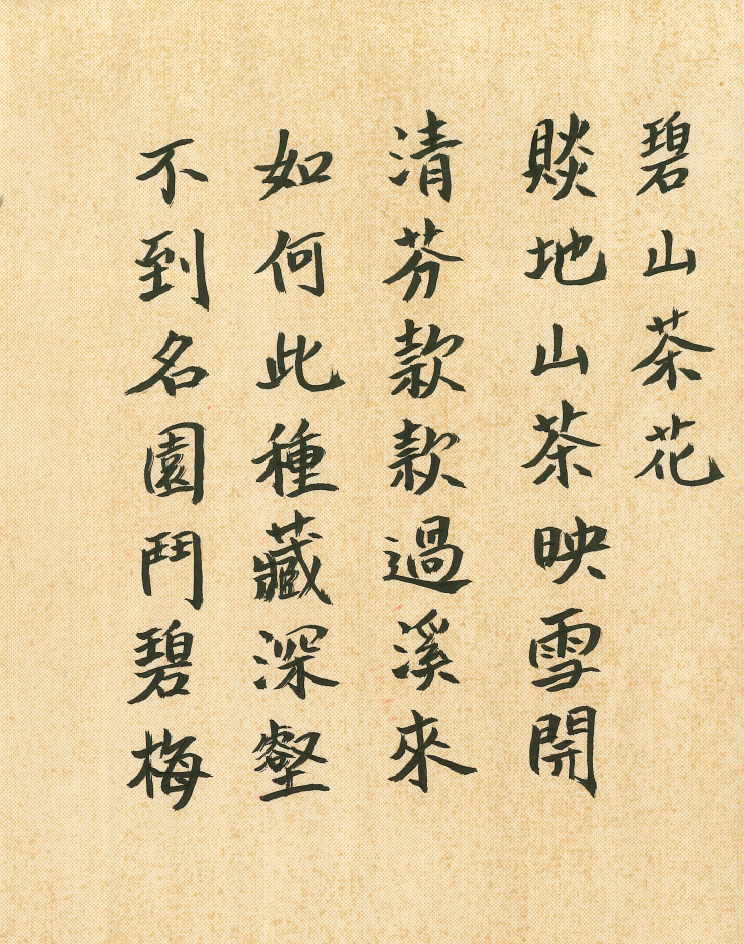 碧山茶花
賧地山茶映雪開
清芬款款過溪來
如何此種藏深壑
不到名園鬥碧梅